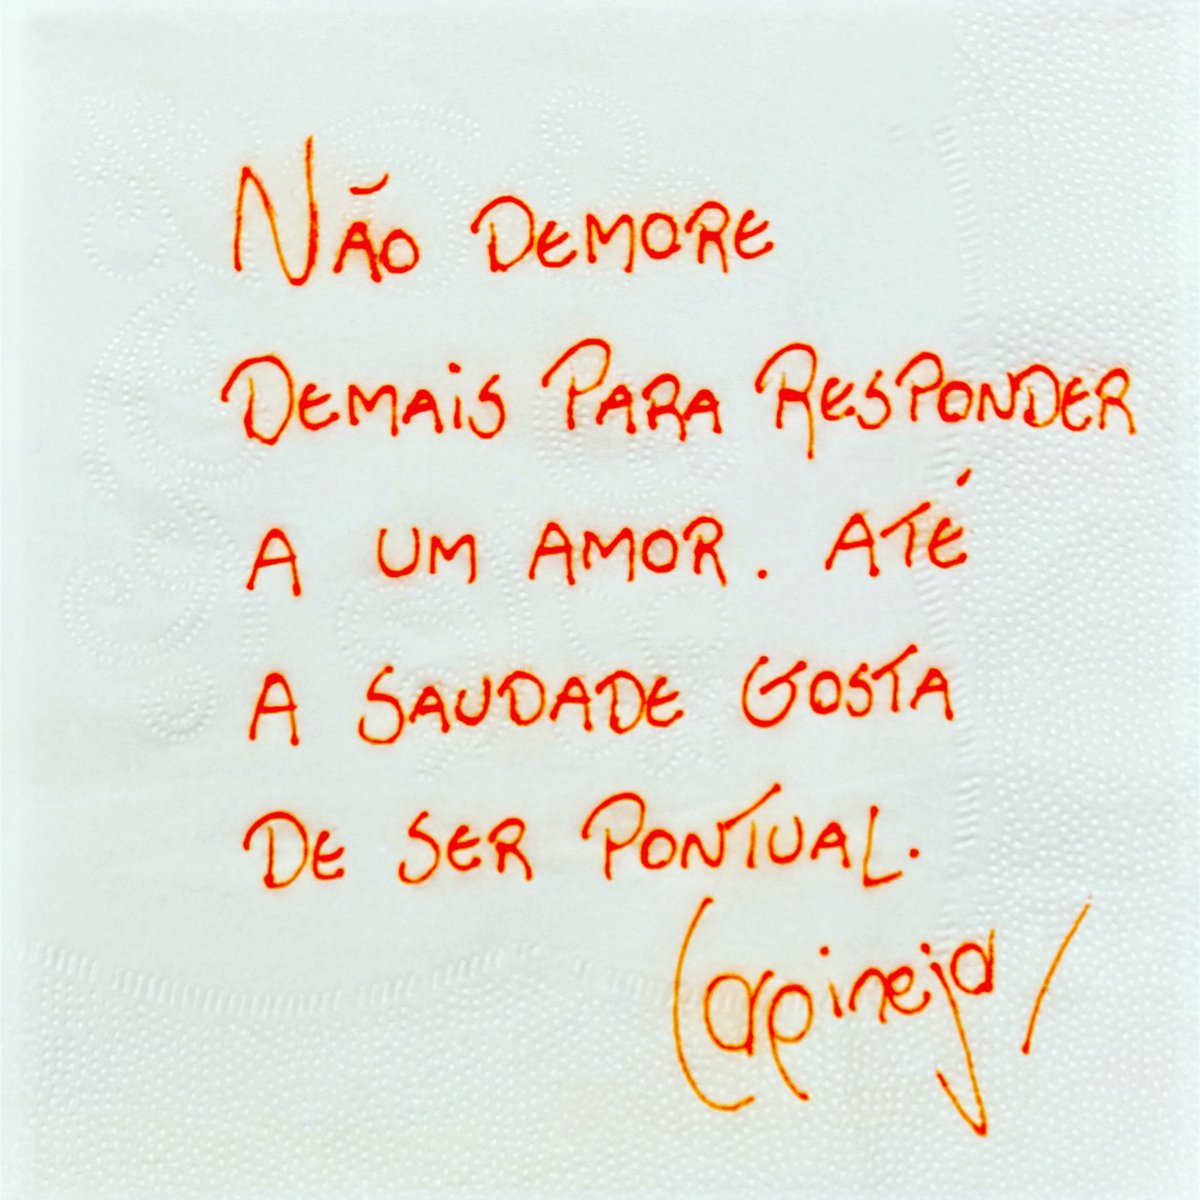 NÃO DEMORE
DEMAIS PARA RESPONDER
A UM AMOR. ATÉ
A SAUDADE GOSTA
DE SER PONTUAL.
Carpinejar